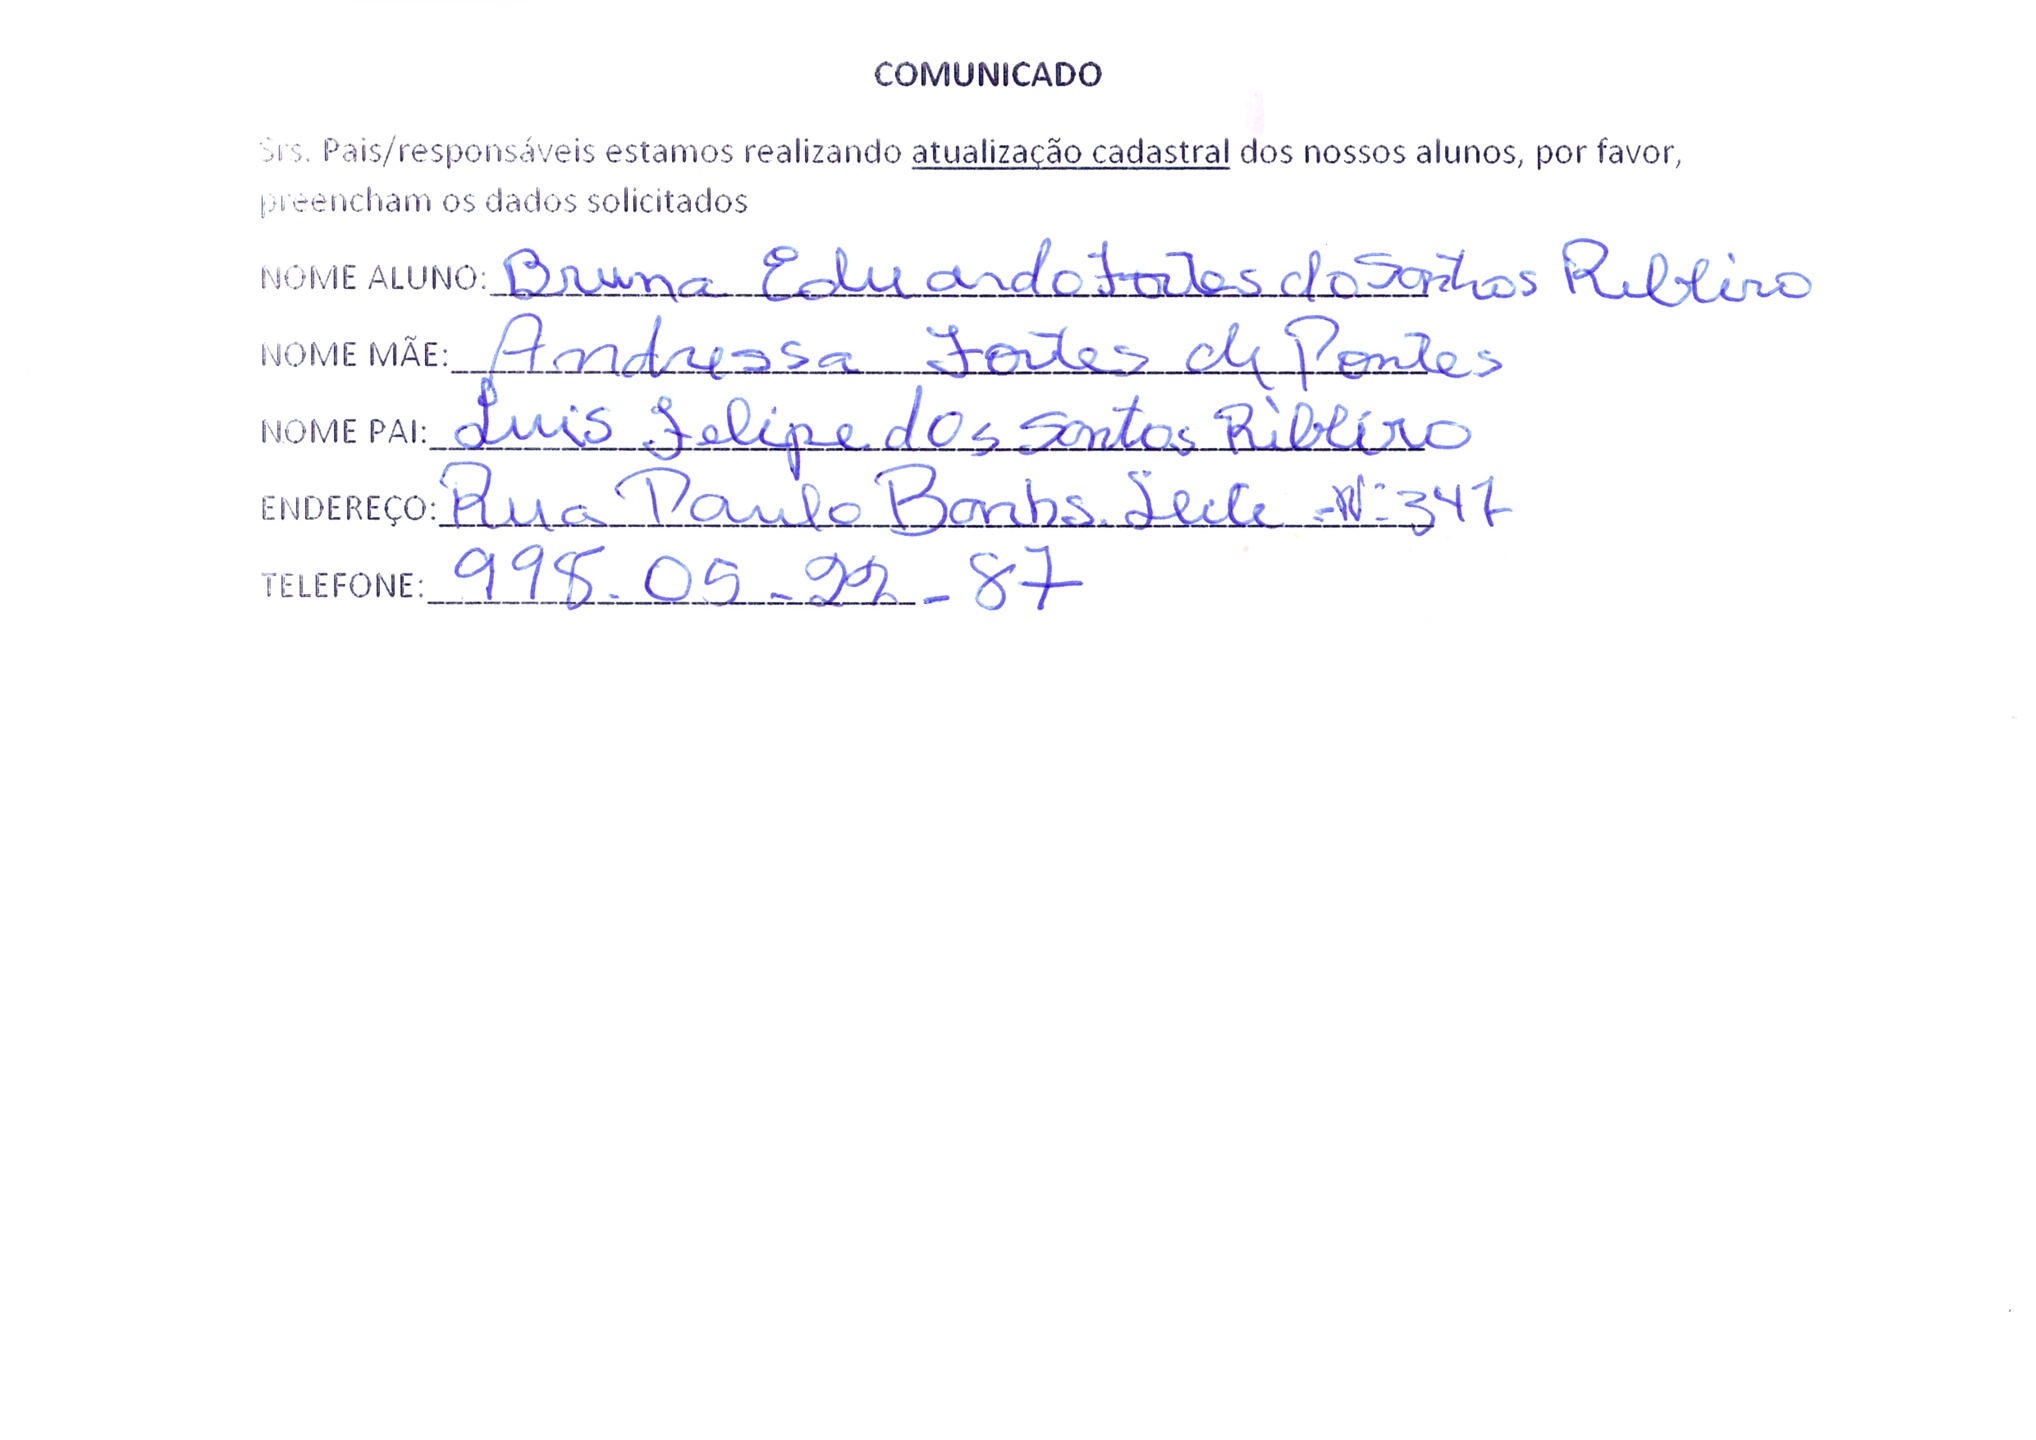 COMUNICADO
Srs. Pais/responsáveis estamos realizando atualização cadastral dos nossos alunos, por favor,
preencham os dados solicitados
NOME ALUNO: Bruna Eduarda Fortes do Santos Ribeiro
NOME MÃE: Andressa Fortes de Pontes
NOME PAI: Luis Felipe dos Santos Ribeiro
ENDEREÇO: Rua Paulo - Nº 347
TELEFONE: 998-05-22-87